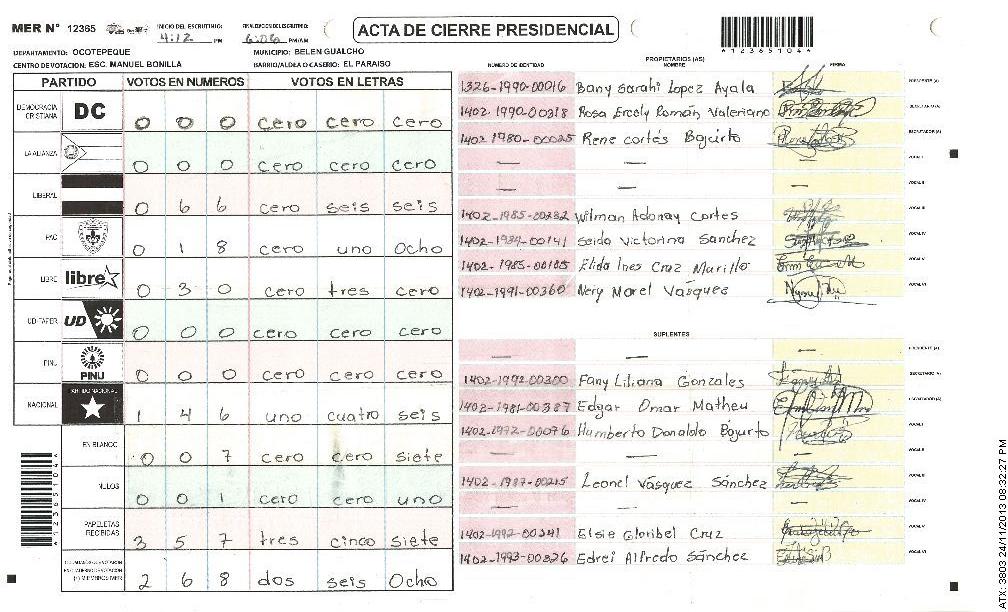 MER N° 12365
INICIO DEL ESCRUTINIO: 4:12 PM
FINALIZACION DEL ESCRUTINIO: 6:06 PM/AM
ACTA DE CIERRE PRESIDENCIAL
*1236510 4*
DEPARTAMENTO: OCOTEPEQUE
MUNICIPIO: BELEN GUALCHO
CENTRO DE VOTACION: ESC. MANUEL BONILLA
BARRIO/ALDEA O CASERIO: EL PARAISO
PARTIDO VOTOS EN NUMEROS VOTOS EN LETRAS
DEMOCRACIA CRISTIANA DC 0 0 0 cero cero cero
LA ALIANZA 0 0 0 cero cero cero
LIBERAL 0 6 6 cero seis seis
PAC 0 1 8 cero uno ocho
LIBRE libre 0 3 0 cero tres cero
UD-FAPER UD 0 0 0 cero cero cero
PINU PINU 0 0 0 cero cero cero
NACIONAL PARTIDO NACIONAL 1 4 6 uno cuatro seis
EN BLANCO 0 0 7 cero cero siete
NULOS 0 0 1 cero cero uno
PAPELETAS RECIBIDAS 3 5 7 tres cinco siete
2 6 8 dos seis ocho
PROPIETARIOS (AS)
NUMERO DE IDENTIDAD NOMBRE FIRMA
1326-1990-00016 Bany Sarahi Lopez Ayala PRESIDENTE (A)
1402-1990-00318 Rosa Ercely Román Valeriano SECRETARIO (A)
1402-1980-00025 Rene cortés Bojurto ESCRUTADOR (A)
— — VOCAL I
— — — VOCAL II
1402-1985-00232 Wilman Adonay Cortes VOCAL III
1402-1984-00141 Seida Victorina Sanchez VOCAL IV
1402-1985-00105 Elida Ines Cruz Murillo VOCAL V
1402-1991-00360 Nery Marel Vásquez VOCAL VI
SUPLENTES
— — — PRESIDENTE (A)
1402-1992-00300 Fany Liliana Gonzales SECRETARIO (A)
1402-1981-00387 Edgar Omar Matheu ESCRUTADOR (A)
1402-1972-00076 Humberto Donaldo Bojurto VOCAL I
— — — VOCAL II
1402-1987-00215 Leonel Vásquez Sánchez VOCAL III
— — — VOCAL IV
1402-1992-00341 Elsie Gloribel Cruz VOCAL V
1402-1993-00326 Edrei Alfredo Sánchez VOCAL VI
ATX: 3803 24/11/2013 08:32:27 PM